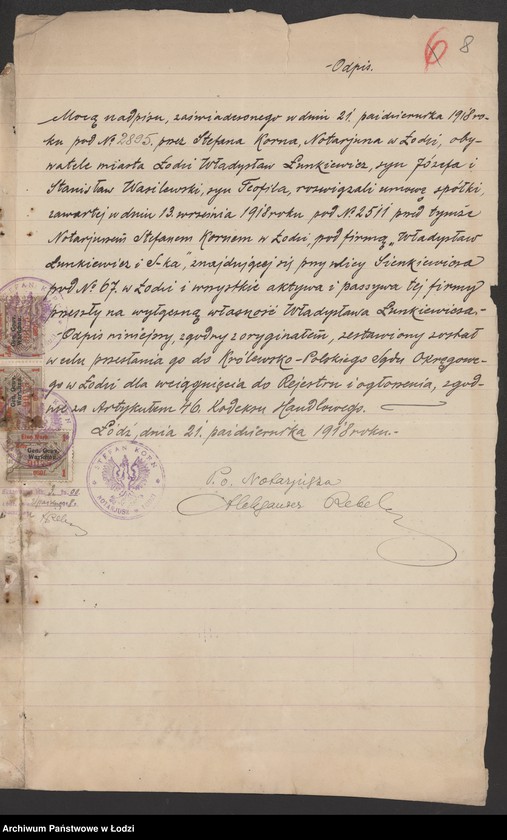 6 8
-Odpis.
Mocą nadpisu, zaświadczonego w dniu 21. października 1918 ro-
ku pod № 2895. przez Stefana Korna, Notarjusza w Łodzi, oby-
watele miasta Łodzi Władysław Lunkiewicz, syn Józefa i
Stanisław Wasilewski, syn Teofila, rozwiązali umowę spółki,
zawartej w dniu 13 września 1918 roku pod № 2511 przed tymże
Notarjuszem Stefanem Kornem w Łodzi pod firmą „Władysław
Lunkiewicz i S-ka" znajdującej się przy ulicy Sienkiewicza
pod № 67. w Łodzi i wszystkie aktywa i passywa tej firmy
przeszły na wyłączną własność Władysława Lunkiewicza.-
-Odpis niniejszy, zgodny z oryginałem, zestawiony został
w celu przesłania go do Królewsko-Polskiego Sądu Okręgowe-
go w Łodzi dla wciągnięcia do Rejestru i ogłoszenia, zgod-
nie za Artykułem 46. Kodeksu Handlowego.
Łódź, dnia 21. października 1918 roku.-
P.o. Notarjusza
Aleksander Rebel
STEFAN KORN
NOTARJUSZ w ŁODZI
Gen.-Gouv. Warschau
Gen.-Gouv. Warschau
Eine Mark
Gen.-Gouv. Warschau
Archiwum Państwowe w Łodzi